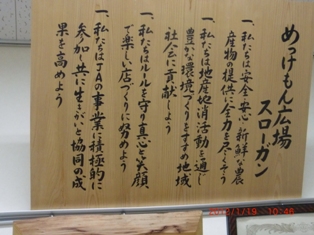 めっけもん広場
スローガン
一、私たちは安全・安心・新鮮な農
産物の提供に全力を尽くそう
一、私たちは地産地消活動を通し
豊かな環境づくりをすすめ地域
社会に貢献しよう
一、私たちはルールを守り真心と笑顔
で楽しい店づくりに努めよう
一、私たちはJAの事業に積極的に
参加し共に生きがいと協同の成
果を高めよう
2013/1/19 10:46